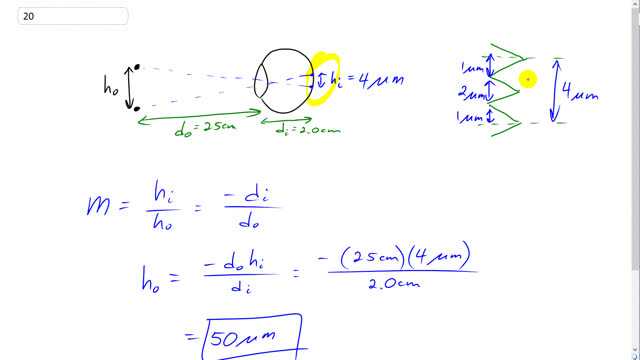 20
hₒ
hᵢ = 4 μm
dₒ = 25cm
dᵢ = 2.0cm
1μm
2μm
1μm
4μm
m = hᵢ / hₒ = -dᵢ / dₒ
hₒ = -dₒhᵢ / dᵢ = -(25cm)(4μm) / 2.0cm
= 50μm